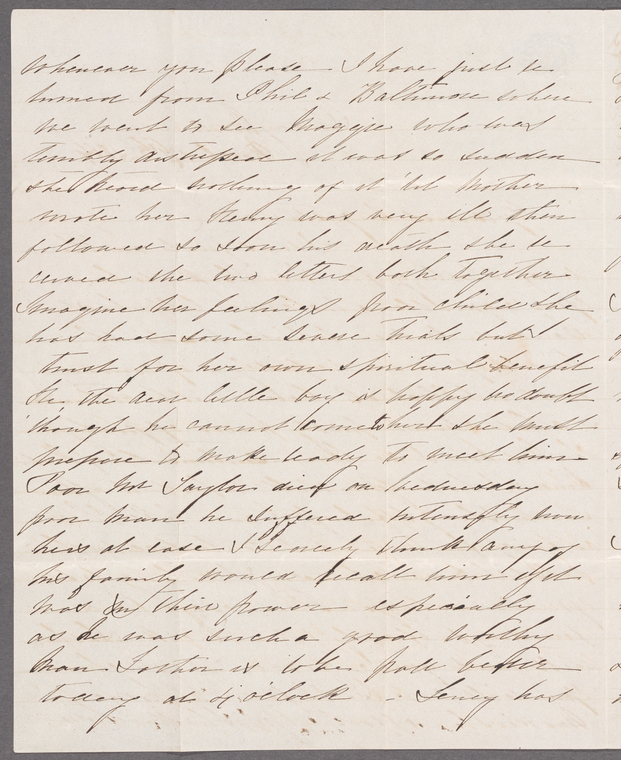 whenever you please I have just re
turned from Phil & Baltimore where
we went to see Maggie who was
terribly distressed it was so sudden
she heard nothing of it 'til Mother
wrote her Henry was very ill then
followed so soon his death she re
ceived the two letters both together
Imagine her feelings poor child she
has had some severe trials but I
trust for her own spiritual benefit
He, the dear little boy is happy no doubt
though he cannot come to her she must
prepare & make ready to meet him
Poor Mr Taylor died on Wednesday
poor man he suffered intensely now
he is at ease & I scarcely think any of
his family would recall him if it
was in their power especially
as he was such a good worthy
man Father is to be pall bearer
today at 4 o'clock - has